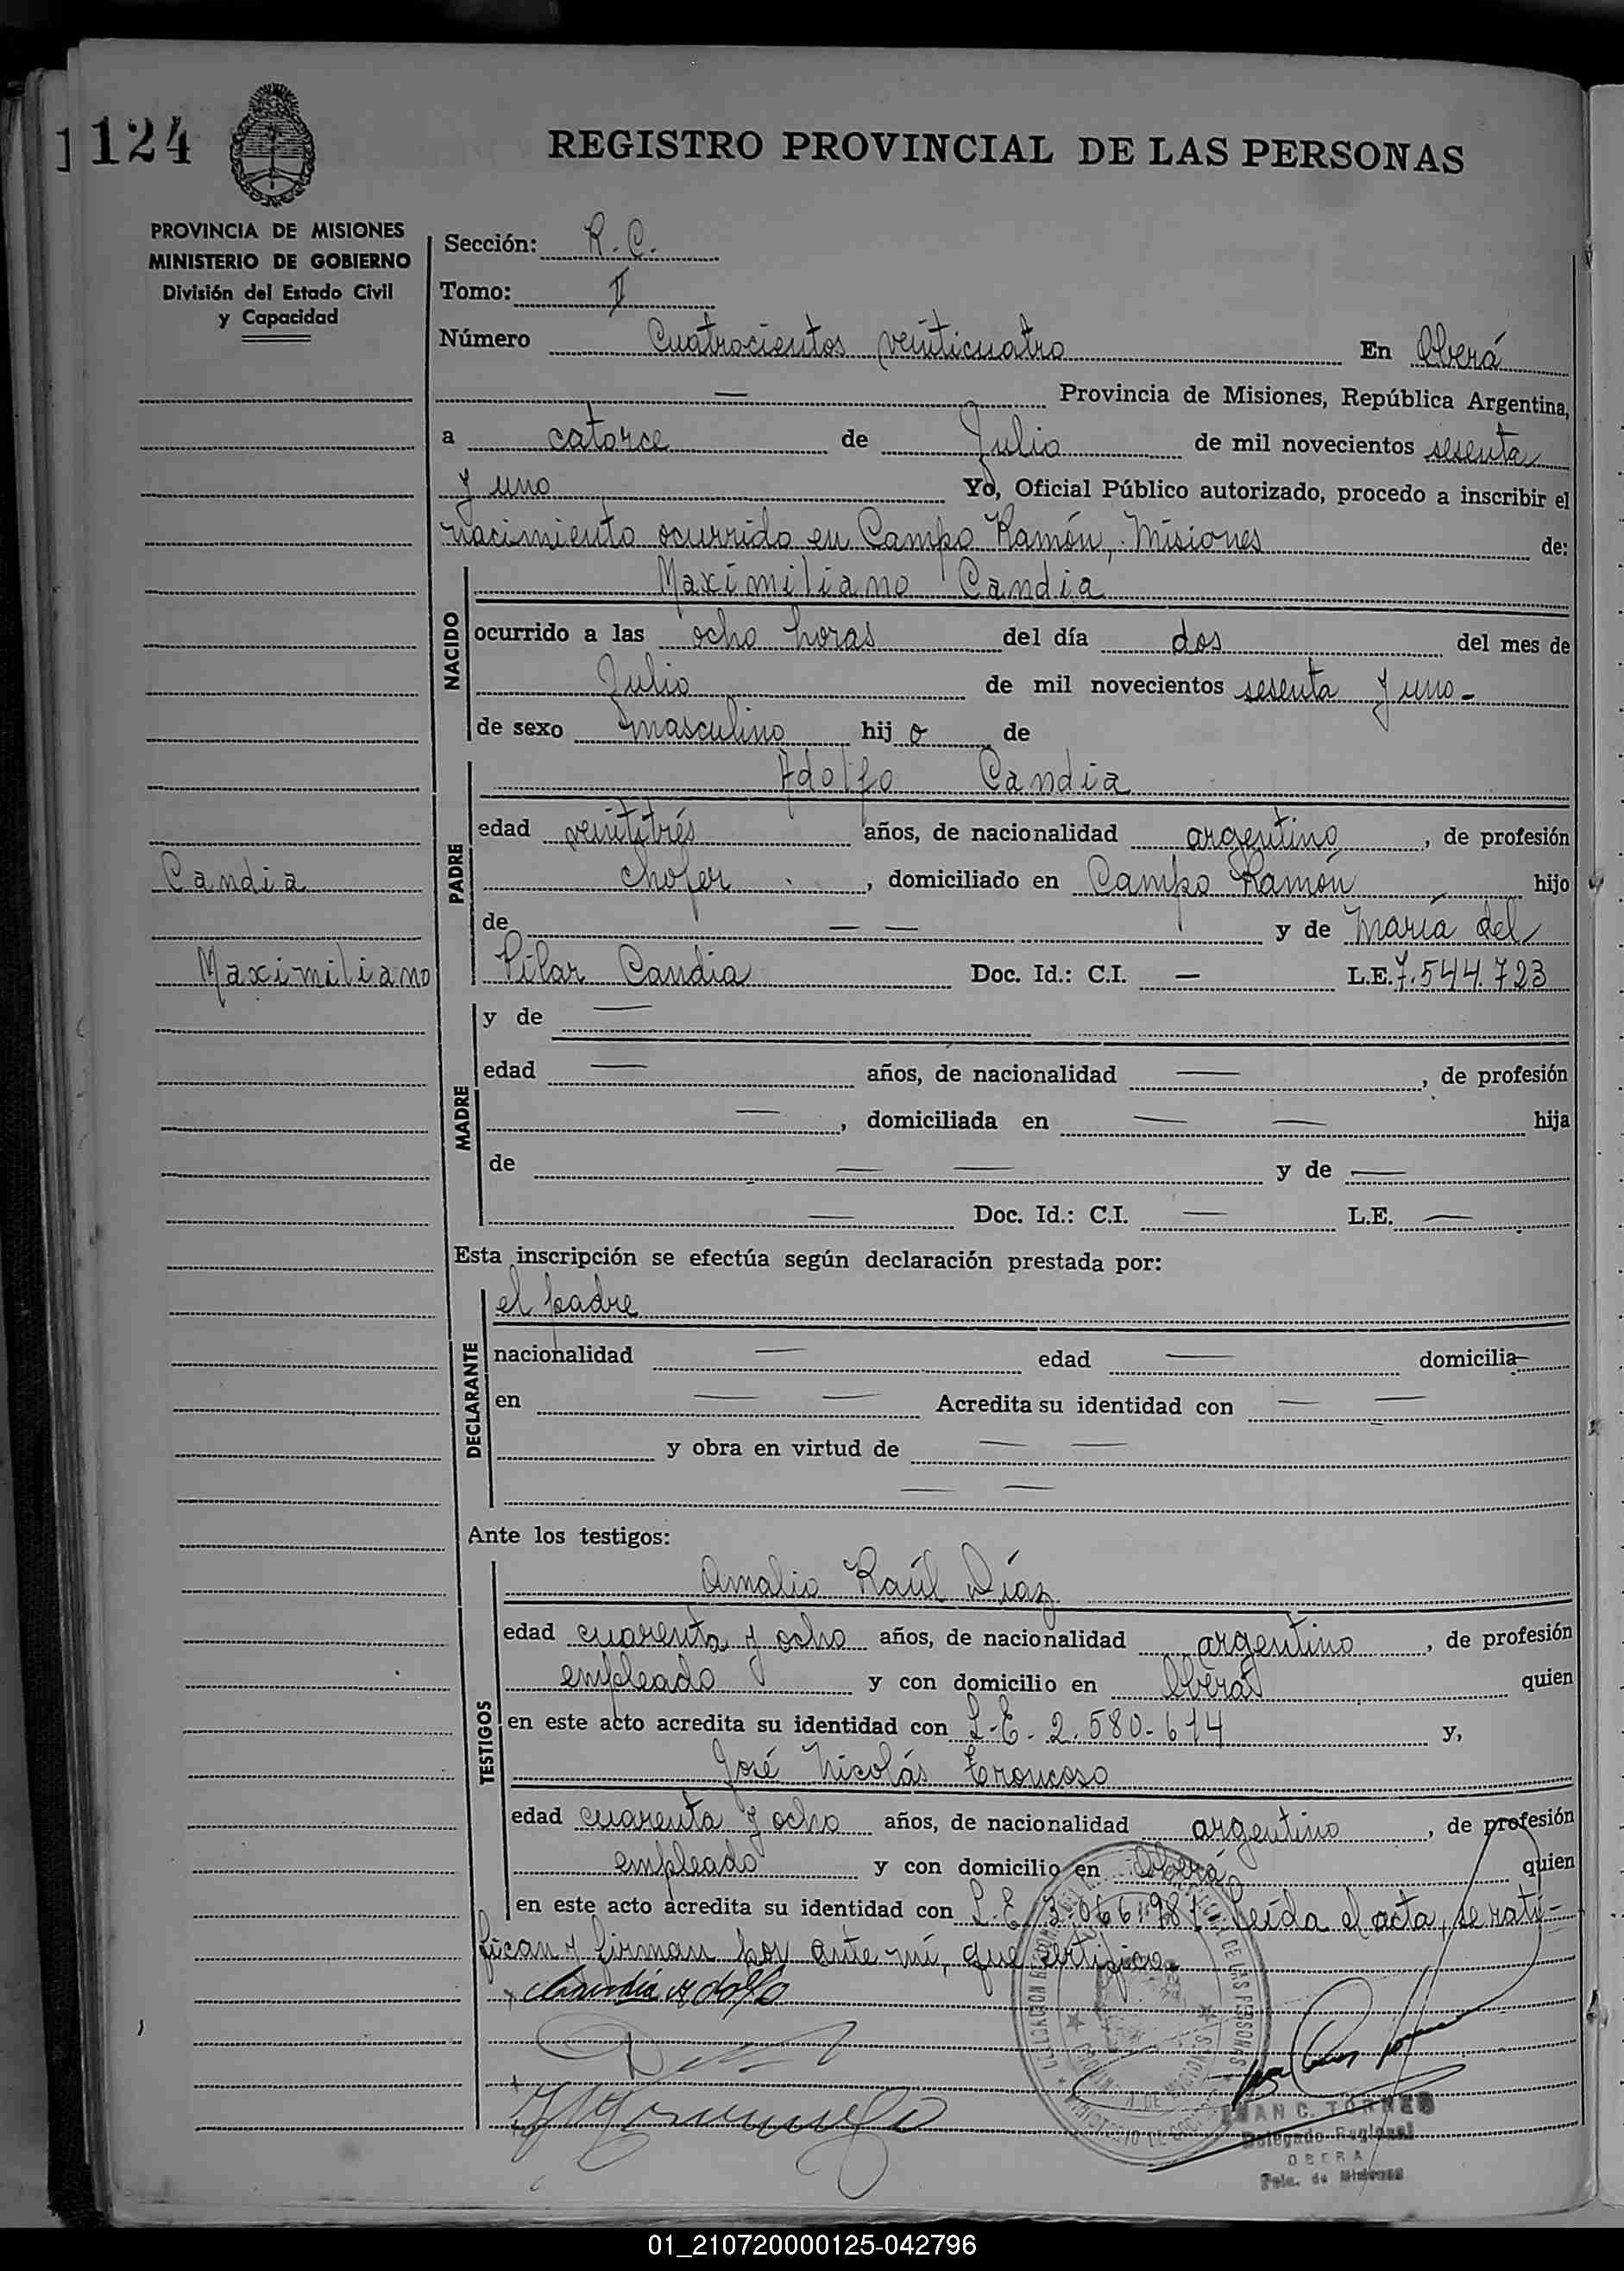 1124
REGISTRO PROVINCIAL DE LAS PERSONAS
PROVINCIA DE MISIONES
MINISTERIO DE GOBIERNO
División del Estado Civil
y Capacidad
Sección: R. C.
Tomo: II
Número Cuatrocientos veinticuatro En Oberá
— Provincia de Misiones, República Argentina,
a catorce de Julio de mil novecientos sesenta
y uno Yo, Oficial Público autorizado, procedo a inscribir el
nacimiento ocurrido en Campo Ramón, Misiones de:
NACIDO
Maximiliano Candia
ocurrido a las ocho horas del día dos del mes de
Julio de mil novecientos sesenta y uno-
de sexo masculino hij o de
PADRE
Adolfo Candia
edad veintitrés años, de nacionalidad argentino, de profesión
chofer, domiciliado en Campo Ramón hijo
de — — y de María del
Pilar Candia Doc. Id.: C.I. — L.E. 7.544.723
Candia
Maximiliano
MADRE
y de —
edad — años, de nacionalidad —, de profesión
—, domiciliada en — — hija
de — — y de —
— Doc. Id.: C.I. — L.E. —
Esta inscripción se efectúa según declaración prestada por:
DECLARANTE
el padre
nacionalidad — edad — domicilia—
en — — Acredita su identidad con — —
y obra en virtud de — —
— —
Ante los testigos:
TESTIGOS
Amalio Raúl Díaz
edad cuarenta y ocho años, de nacionalidad argentino, de profesión
empleado y con domicilio en Oberá quien
en este acto acredita su identidad con L.E. 2.580.614 y,
José Nicolás Troncoso
edad cuarenta y ocho años, de nacionalidad argentino, de profesión
empleado y con domicilio en Oberá quien
en este acto acredita su identidad con L.E. 3.066.981. Leída el acta, se rati-
fican y firman hoy ante mí, que certifico.
Candia Adolfo
JUAN C. TORRES
Delegado Regional
OBERA
Pcia. de Misiones
01_210720000125-042796